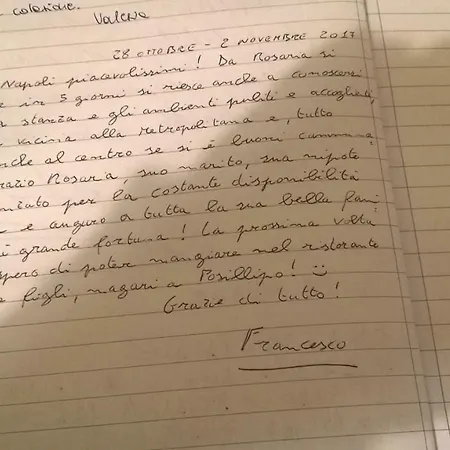 colazione.
Valeria
28 OTTOBRE - 2 NOVEMBRE 2017
Napoli piacevolissimi! Da Rosaria si
in 5 giorni si riesce anche a conoscere
stanza e gli ambienti puliti e accoglienti,
vicina alla metropolitana e, tutto
anche al centro se si è buoni cammina
Rosaria, suo marito, sua nipote
per la costante disponibilità
e auguro a tutta la sua bella fami
grande fortuna! La prossima volta
spero di poter mangiare nel ristorante
figli, magari a Posillipo! :)
Grazie di tutto!
Francesco